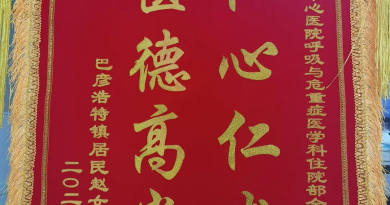 心医院呼吸与危重症医学科住院部全
心仁
医德高
巴彦浩特镇居民赵女
二〇二